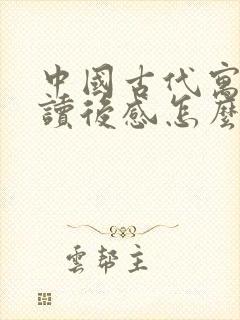 中國古代寓
讀後感怎麼
雲幫主